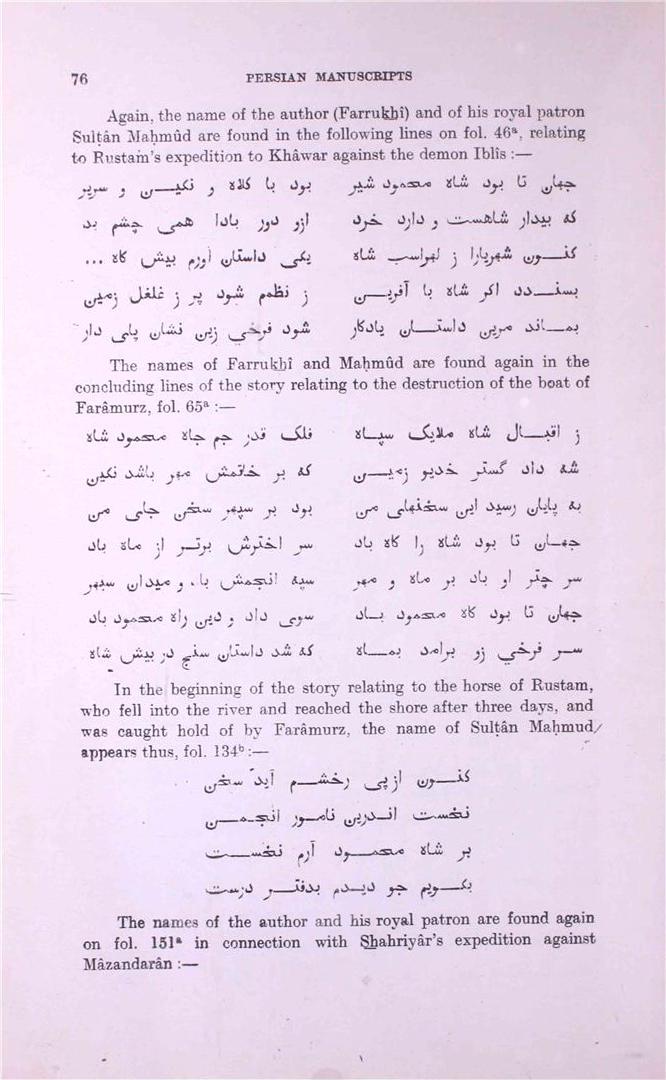 76 PERSIAN MANUSCRIPTS
Again, the name of the author (Farrukhî) and of his royal patron
Sulṭân Maḥmûd are found in the following lines on fol. 46ᵃ, relating
to Rustam's expedition to Khâwar against the demon Iblîs :—
جهان تا بود شاه محمود شیر بود با کلاه و نگیـن و سریر
که بیدار شاهست و دارد خرد ازو دور بادا همی چشم بد
کنـون شهریارا ز لهراسب شاه یکی داستان اورم بیش کاه ...
بسنـدد اکر شاه با آفریـن ز نظمم شود پر ز غلغل زمین
بمـاند مرین داستـان یادکار شود فرخی زین نشان پلی دار
The names of Farrukhî and Maḥmûd are found again in the
concluding lines of the story relating to the destruction of the boat of
Farâmurz, fol. 65ᵃ :—
ز اقبـال شاه ملایک سپـاه فلک قدر جم جاه محمود شاه
شه داد گستر خدیو زمیـن که بر خاتمش مهر باشد نکین
به پایان رسید این سخنهای من بود بر سپهر سخن جای من
جهـان تا بود شاه را کاه باد سر اخترش برتـر از ماه باد
سر چتر او باد بر ماه و مهر سپه انجمش و میدان سپهر
جهان تا بود کاه محمود بـاد سوی داد و دین راه محمود باد
سـر فرخی زو برامد بمـاه که شد داستان سنج در بیش شاه
In the beginning of the story relating to the horse of Rustam,
who fell into the river and reached the shore after three days, and
was caught hold of by Farâmurz, the name of Sulṭân Maḥmud
appears thus, fol. 134ᵇ :—
کنـون از پی رخشـم آید سخن
نخست انـدرین نامـور انجمـن
بر شاه محمـود آرم نخسـت
بکـویم جو دیـدم بدفتـر درست
The names of the author and his royal patron are found again
on fol. 151ᵃ in connection with Shahriyâr's expedition against
Mâzandarân :—